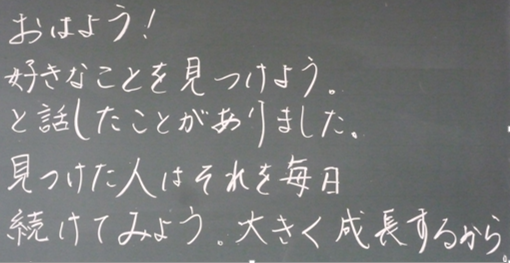 おはよう!
好きなことを見つけよう。
と話したことがありました。
見つけた人はそれを毎日
続けてみよう。大きく成長するから。